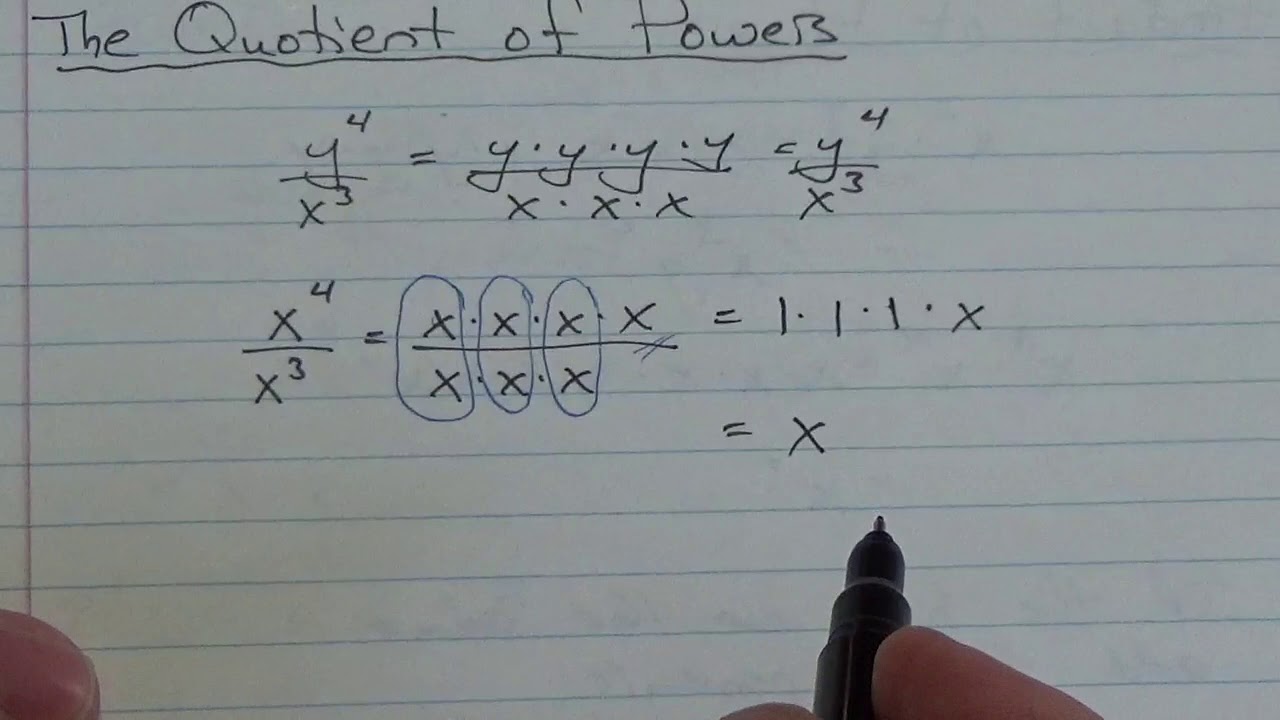 The Quotient of Powers
y⁴/x³ = y·y·y·y/x·x·x = y⁴/x³
x⁴/x³ = x·x·x·x/x·x·x = 1·1·1·x
= x